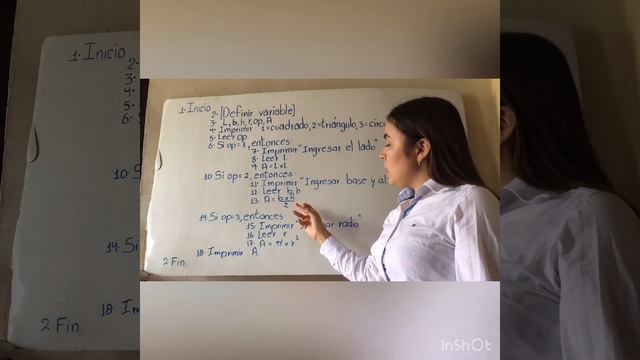 1. Inicio
2. [Definir variable]
3. L, b, h, r, op, A
4. Imprimir 1=cuadrado, 2=triángulo, 3=circ
5. Leer op
6. Si op=1, entonces:
7. Imprimir "Ingresar el lado"
8. Leer L
9. A=LxL
10. Si op=2, entonces:
11. Imprimir "Ingresar base y al
12. Leer b, h
13. A = bxh
2
14. Si op=3, entonces
15. Imprimir radio"
16. Leer r
17. A = π x r²
18. Imprimir A
2. Fin
InShOt